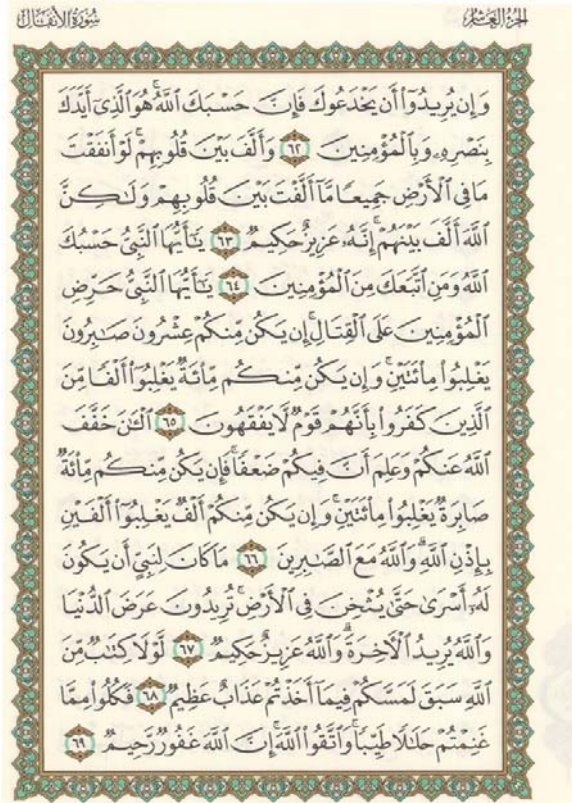 سُورَةُ الأَنفَالِ
الجُزءُ العَاشِرُ
وَإِن يُرِيدُوٓا۟ أَن يَخْدَعُوكَ فَإِنَّ حَسْبَكَ ٱللَّهُ ۚ هُوَ ٱلَّذِىٓ أَيَّدَكَ
بِنَصْرِهِۦ وَبِٱلْمُؤْمِنِينَ ٦٢ وَأَلَّفَ بَيْنَ قُلُوبِهِمْ ۚ لَوْ أَنفَقْتَ
مَا فِى ٱلْأَرْضِ جَمِيعًا مَّآ أَلَّفْتَ بَيْنَ قُلُوبِهِمْ وَلَـٰكِنَّ
ٱللَّهَ أَلَّفَ بَيْنَهُمْ ۚ إِنَّهُۥ عَزِيزٌ حَكِيمٌ ٦٣ يَـٰٓأَيُّهَا ٱلنَّبِىُّ حَسْبُكَ
ٱللَّهُ وَمَنِ ٱتَّبَعَكَ مِنَ ٱلْمُؤْمِنِينَ ٦٤ يَـٰٓأَيُّهَا ٱلنَّبِىُّ حَرِّضِ
ٱلْمُؤْمِنِينَ عَلَى ٱلْقِتَالِ ۚ إِن يَكُن مِّنكُمْ عِشْرُونَ صَـٰبِرُونَ
يَغْلِبُوا۟ مِا۟ئَتَيْنِ ۚ وَإِن يَكُن مِّنكُم مِّا۟ئَةٌ يَغْلِبُوٓا۟ أَلْفًا مِّنَ
ٱلَّذِينَ كَفَرُوا۟ بِأَنَّهُمْ قَوْمٌ لَّا يَفْقَهُونَ ٦٥ ٱلْـَٔـٰنَ خَفَّفَ
ٱللَّهُ عَنكُمْ وَعَلِمَ أَنَّ فِيكُمْ ضَعْفًا ۚ فَإِن يَكُن مِّنكُم مِّا۟ئَةٌ
صَابِرَةٌ يَغْلِبُوا۟ مِا۟ئَتَيْنِ ۚ وَإِن يَكُن مِّنكُمْ أَلْفٌ يَغْلِبُوٓا۟ أَلْفَيْنِ
بِإِذْنِ ٱللَّهِ ۗ وَٱللَّهُ مَعَ ٱلصَّـٰبِرِينَ ٦٦ مَا كَانَ لِنَبِىٍّ أَن يَكُونَ
لَهُۥٓ أَسْرَىٰ حَتَّىٰ يُثْخِنَ فِى ٱلْأَرْضِ ۚ تُرِيدُونَ عَرَضَ ٱلدُّنْيَا
وَٱللَّهُ يُرِيدُ ٱلْـَٔاخِرَةَ ۗ وَٱللَّهُ عَزِيزٌ حَكِيمٌ ٦٧ لَّوْلَا كِتَـٰبٌ مِّنَ
ٱللَّهِ سَبَقَ لَمَسَّكُمْ فِيمَآ أَخَذْتُمْ عَذَابٌ عَظِيمٌ ٦٨ فَكُلُوا۟ مِمَّا
غَنِمْتُمْ حَلَـٰلًا طَيِّبًا ۚ وَٱتَّقُوا۟ ٱللَّهَ ۚ إِنَّ ٱللَّهَ غَفُورٌ رَّحِيمٌ ٦٩